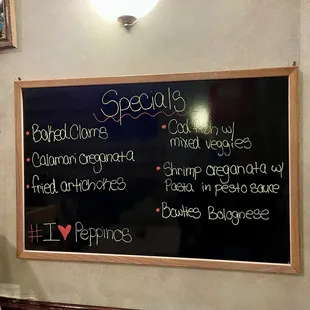 Specials
• Baked Clams
• Calamari oreganata
• fried artichokes
• Codfish w/
mixed veggies
• Shrimp oreganata w/
Pasta in pesto sauce
• Bowties Bolognese
#I ♥ Peppinos